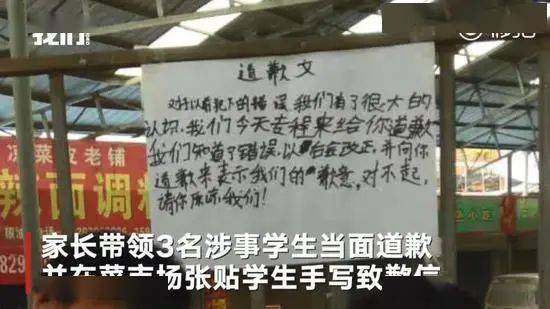 我们
道歉文
对于以前犯下的错误我们有了很大的
认识,我们今天专程来给你道歉
我们知道了错误,以后会改正,并向你
道歉来表示我们的歉意,对不起,
请你原谅我们!
凉菜皮老铺
辣面调料
829
家长带领3名涉事学生当面道歉
并在菜市场张贴学生手写致歉信